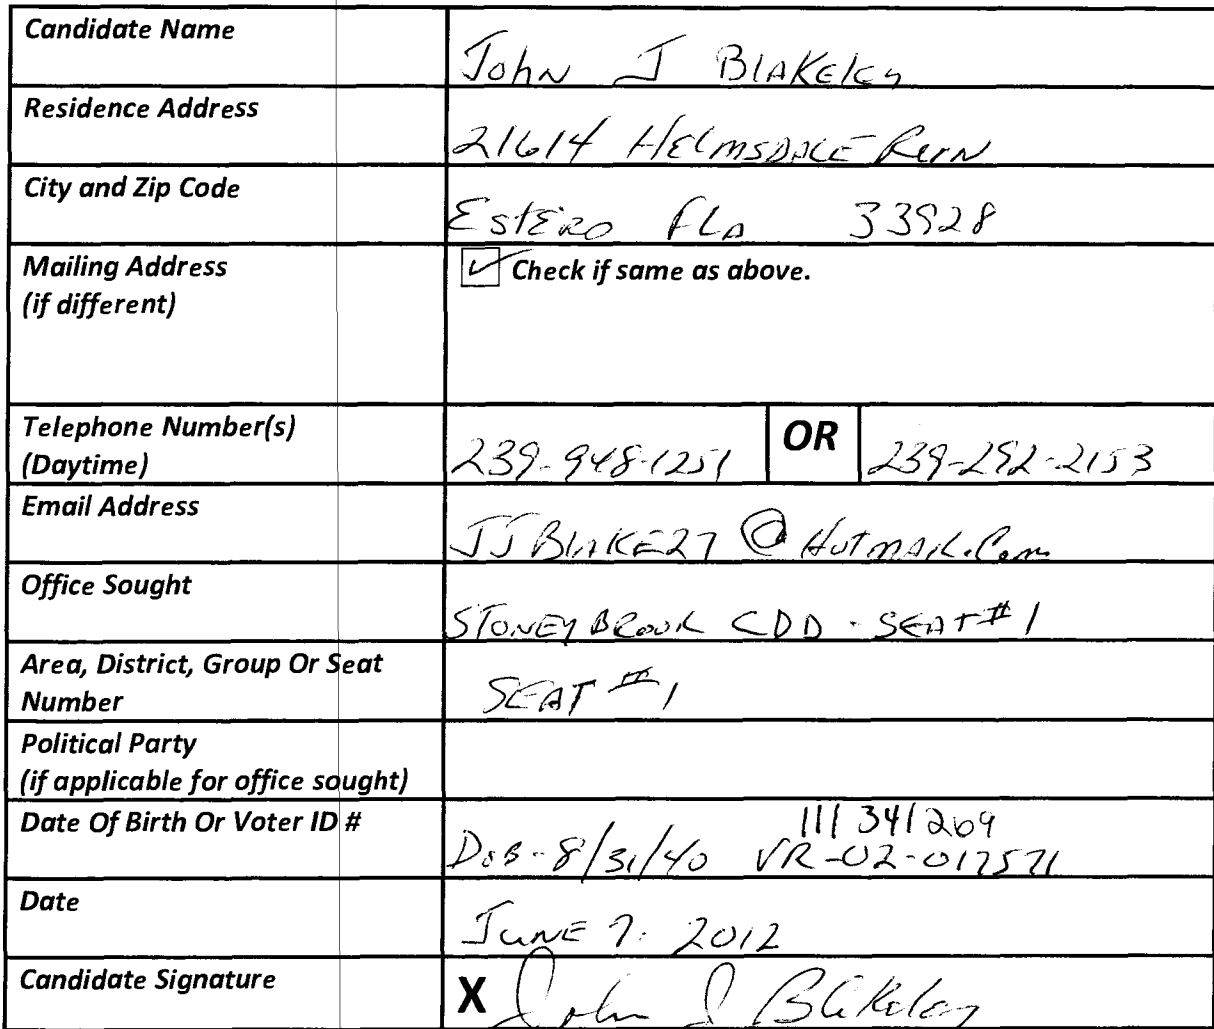 Candidate Name
John J BlAKElEy
Residence Address
21614 HElmsDALE RUN
City and Zip Code
EstERO FLA 33928
Mailing Address
(if different)
Check if same as above.
Telephone Number(s)
(Daytime)
239-948-1251 OR 239-292-2153
Email Address
JJBlAKE27@HotmAil.Com
Office Sought
STONEyBROOK CDD - SEAT #1
Area, District, Group Or Seat
Number
SEAT #1
Political Party
(if applicable for office sought)
Date Of Birth Or Voter ID #
111341269
DOB-8/31/40 VR-02-017571
Date
JUNE 7. 2012
Candidate Signature
X John J Blakeley